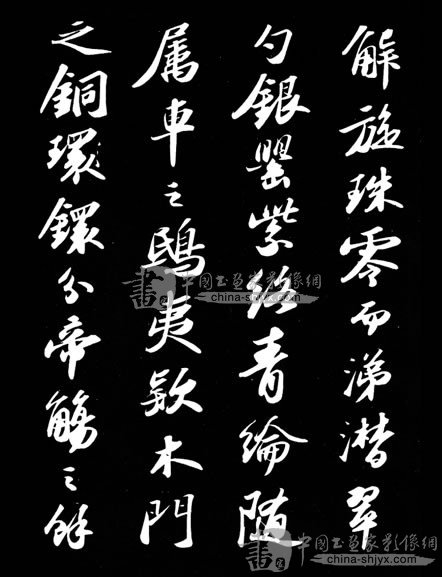 解旋珠零而涕潸翠
勺銀罌紫絡青綸随
属車之鴟夷款木門
之銅環鐶分帝觴之餘
書 中國书画家影像網
china-shjyx.com
書 中國书画家影像網
china-shjyx.com